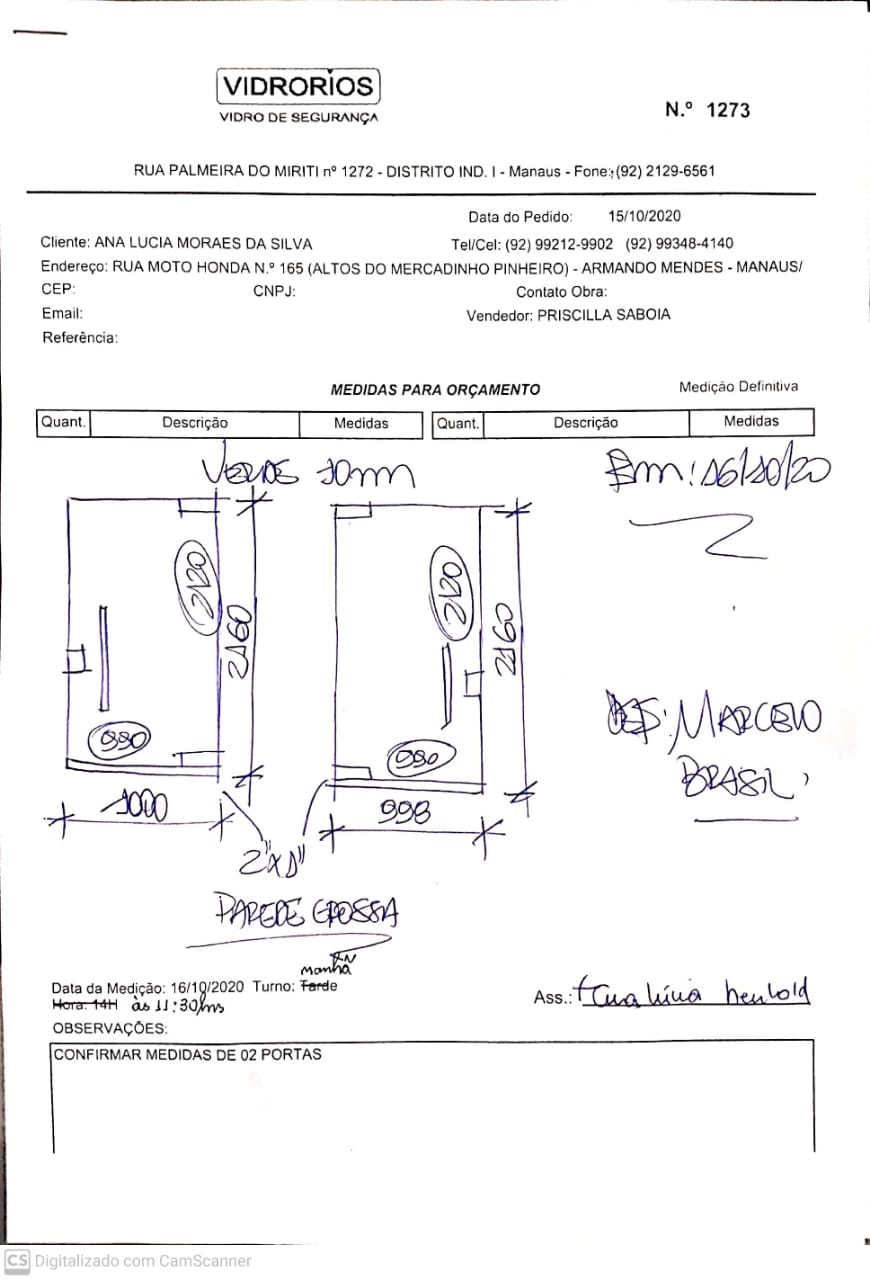 VIDRORIOS
VIDRO DE SEGURANÇA
N.º 1273
RUA PALMEIRA DO MIRITI nº 1272 - DISTRITO IND. I - Manaus - Fone:(92) 2129-6561
Data do Pedido: 15/10/2020
Cliente: ANA LUCIA MORAES DA SILVA Tel/Cel: (92) 99212-9902 (92) 99348-4140
Endereço: RUA MOTO HONDA N.º 165 (ALTOS DO MERCADINHO PINHEIRO) - ARMANDO MENDES - MANAUS/
CEP: CNPJ: Contato Obra:
Email: Vendedor: PRISCILLA SABOIA
Referência:
MEDIDAS PARA ORÇAMENTO Medição Definitiva
Quant. Descrição Medidas Quant. Descrição Medidas
VERDE 10mm Em: 16/10/20
2120 2160 2120 2160
MARCELO
BRASIL
990 990
1000 998
2"x1"
PAREDE GROSSA
Manhã
Data da Medição: 16/10/2020 Turno: Tarde
Hora: 14H às 11:30hs
Ass.:
OBSERVAÇÕES:
CONFIRMAR MEDIDAS DE 02 PORTAS
CS Digitalizado com CamScanner